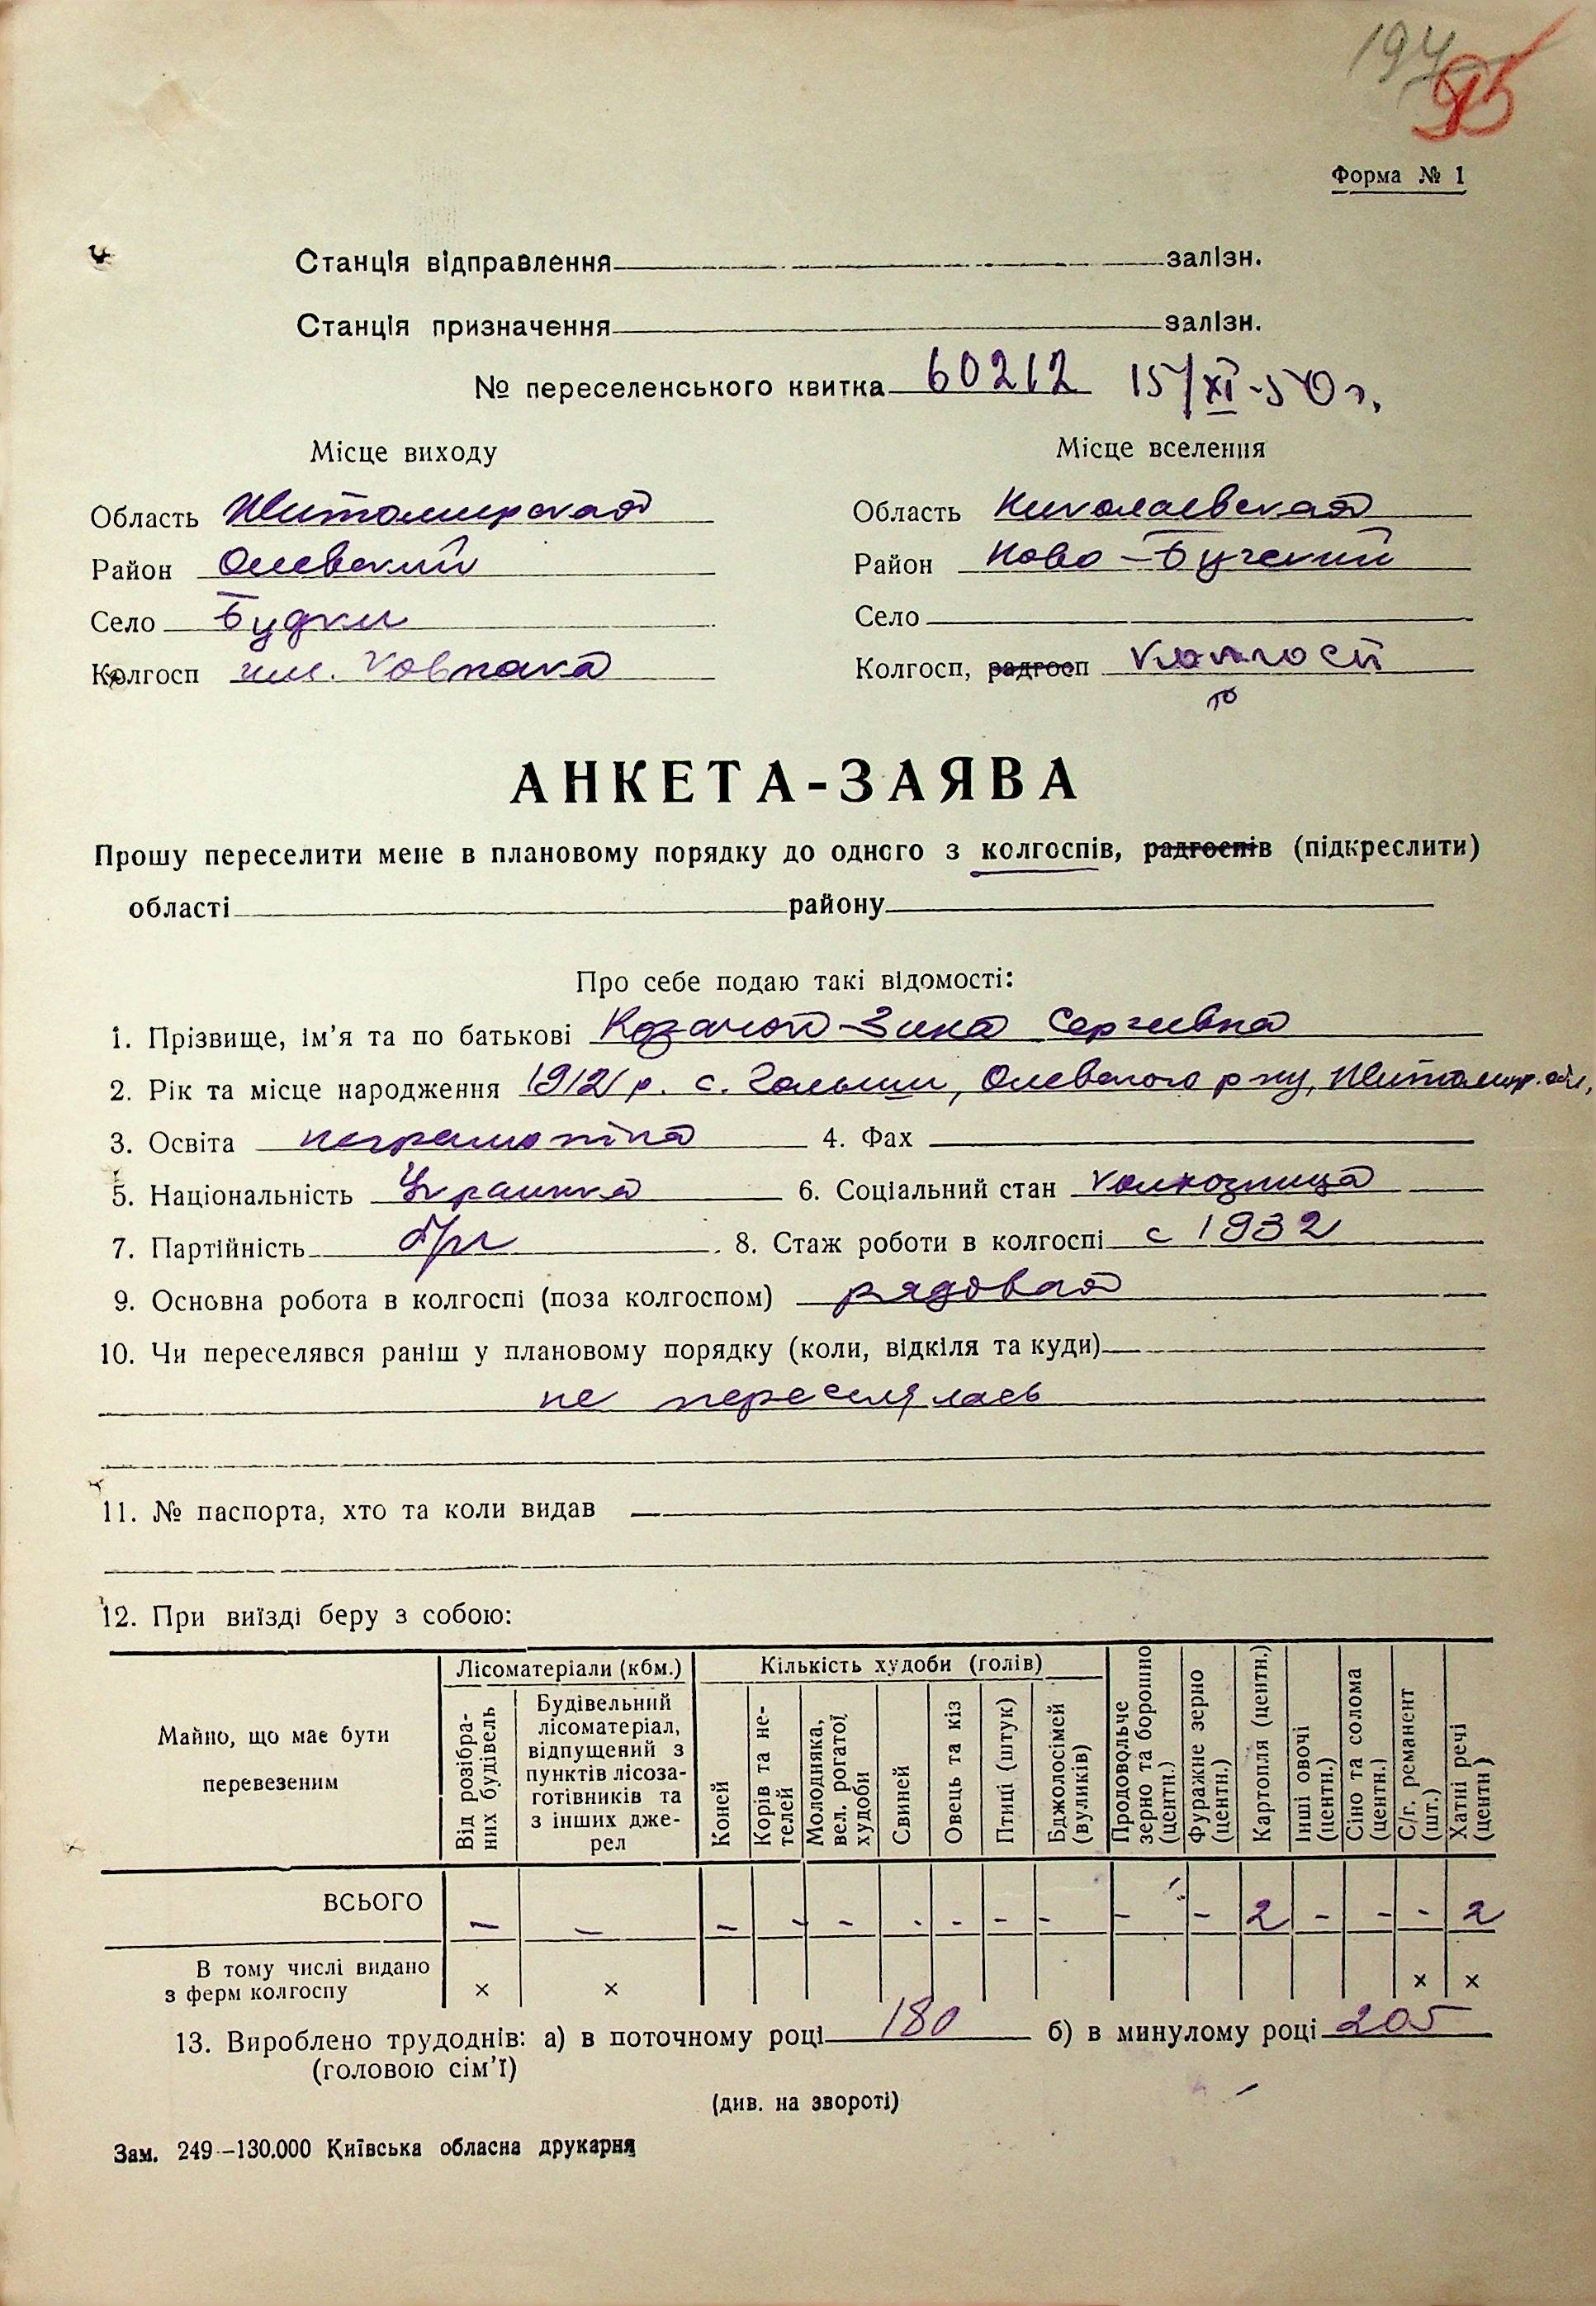 194
95
Форма № 1
Станція відправлення залізн.
Станція призначення залізн.
№ переселенського квитка 60212 15/XI-50 г.
Місце виходу Місце вселення
Область Житомирская Область Николаевская
Район Олевский Район Ново-Бугский
Село Будки Село
Колгосп им. Ковпака Колгосп, радгосп
АНКЕТА-ЗАЯВА
Прошу переселити мене в плановому порядку до одного з колгоспів, радгоспів (підкреслити)
області району
Про себе подаю такі відомості:
1. Прізвище, ім’я та по батькові Зина Сергеевна
2. Рік та місце народження 1912 р. с. Олевского р-ну, Житомир. обл,
3. Освіта неграмотна 4. Фах
5. Національність Украинка 6. Соціальний стан колхозница
7. Партійність б/п 8. Стаж роботи в колгоспі с 1932
9. Основна робота в колгоспі (поза колгоспом) рядовая
10. Чи переселявся раніш у плановому порядку (коли, відкіля та куди)
не переселялась
11. № паспорта, хто та коли видав
12. При виїзді беру з собою:
Майно, що має бути перевезеним
Лісоматеріали (кбм.)
Кількість худоби (голів)
Від розібраних будівель
Будівельний лісоматеріал, відпущений з пунктів лісозаготівників та з інших джерел
Коней
Корів та нетелей
Молодняка, вел. рогатої худоби
Свиней
Овець та кіз
Птиці (штук)
Бджолосімей (вуликів)
Продовольче зерно та борошно (центн.)
Фуражне зерно (центн.)
Картопля (центн.)
Інші овочі (центн.)
Сіно та солома (центн.)
С/г. реманент (шт.)
Хатні речі (центн)
ВСЬОГО — — - - - - - - - - - 2 - - - 2
В тому числі видано
з ферм колгоспу × × × ×
13. Вироблено трудоднів: а) в поточному році 180 б) в минулому році 205
(головою сім’ї)
(див. на звороті)
Зам. 249—130.000 Київська обласна друкарня